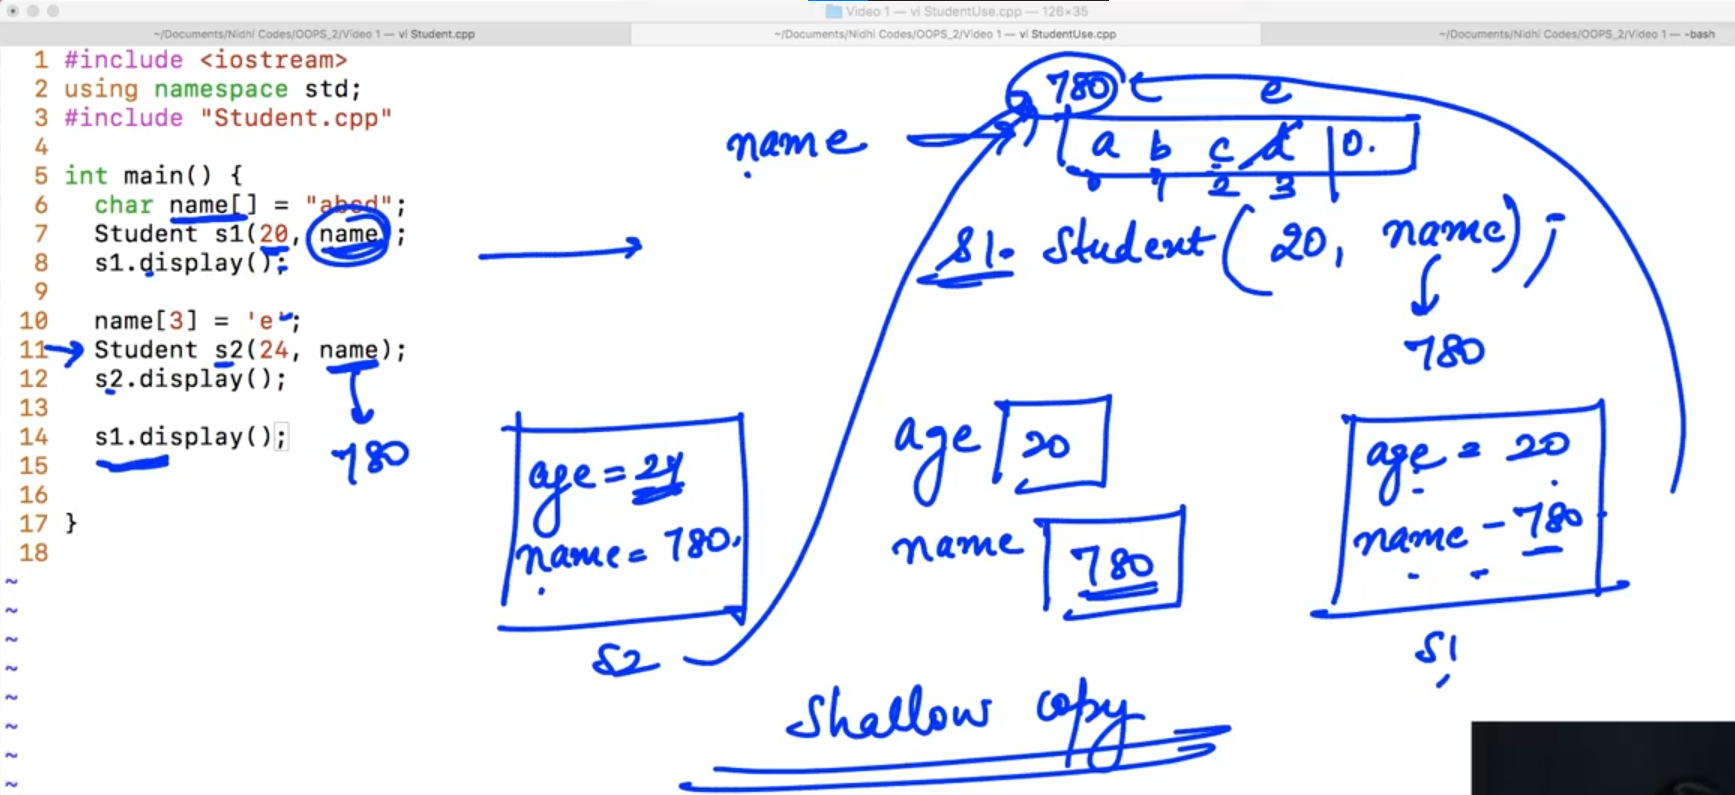 Video 1 — vi StudentUse.cpp — 126×35
~/Documents/Nidhi Codes/OOPS_2/Video 1 — vi Student.cpp
~/Documents/Nidhi Codes/OOPS_2/Video 1 — vi StudentUse.cpp
~/Documents/Nidhi Codes/OOPS_2/Video 1 — -bash
1 #include <iostream>
2 using namespace std;
3 #include "Student.cpp"
4
5 int main() {
6 char name[] = "abcd";
7 Student s1(20, name);
8 s1.display();
9
10 name[3] = 'e';
11 Student s2(24, name);
12 s2.display();
13
14 s1.display();
15
16
17 }
18
~
~
~
~
~
~
~
~
780
e
name
a b c d 0
0 1 2 3
S1. Student(20, name);
780
780
age = 24
name = 780
S2
age 20
name 780
age = 20
name - 780
S1
Shallow copy